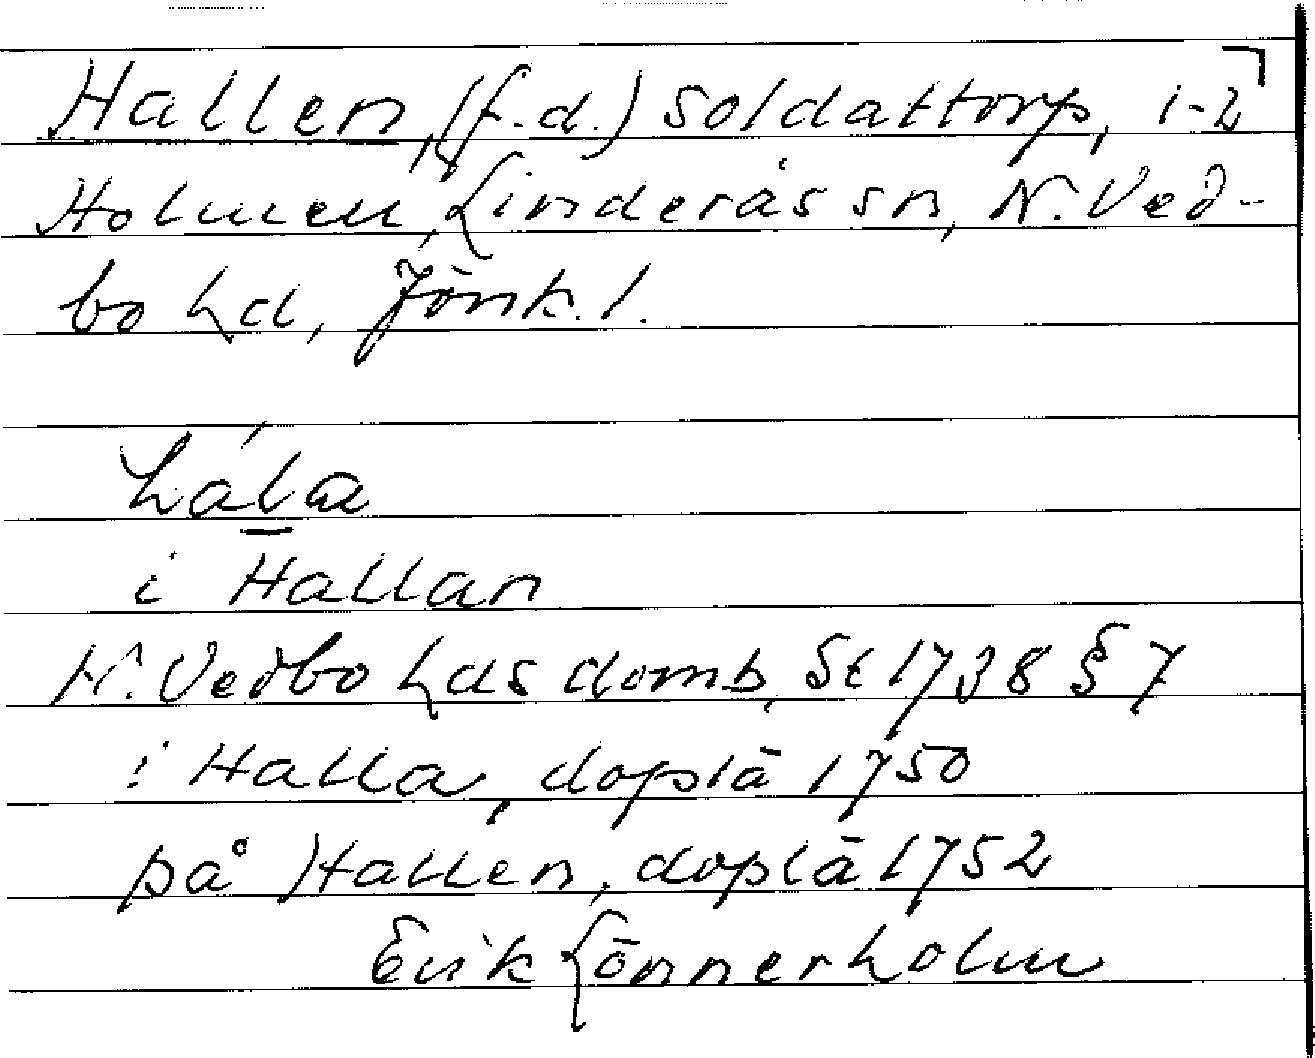 Hallen, (f.d.) soldattorp, 1-2
Holmen, Linderås sn, N. Ved-
bo hd, Jönk. l.
hála
i Hallan
N. Vedbo hds domb, St 1738 § 7
i Halla, doplä 1750
på Hallen, doplä 1752
Erik Lönnerholm